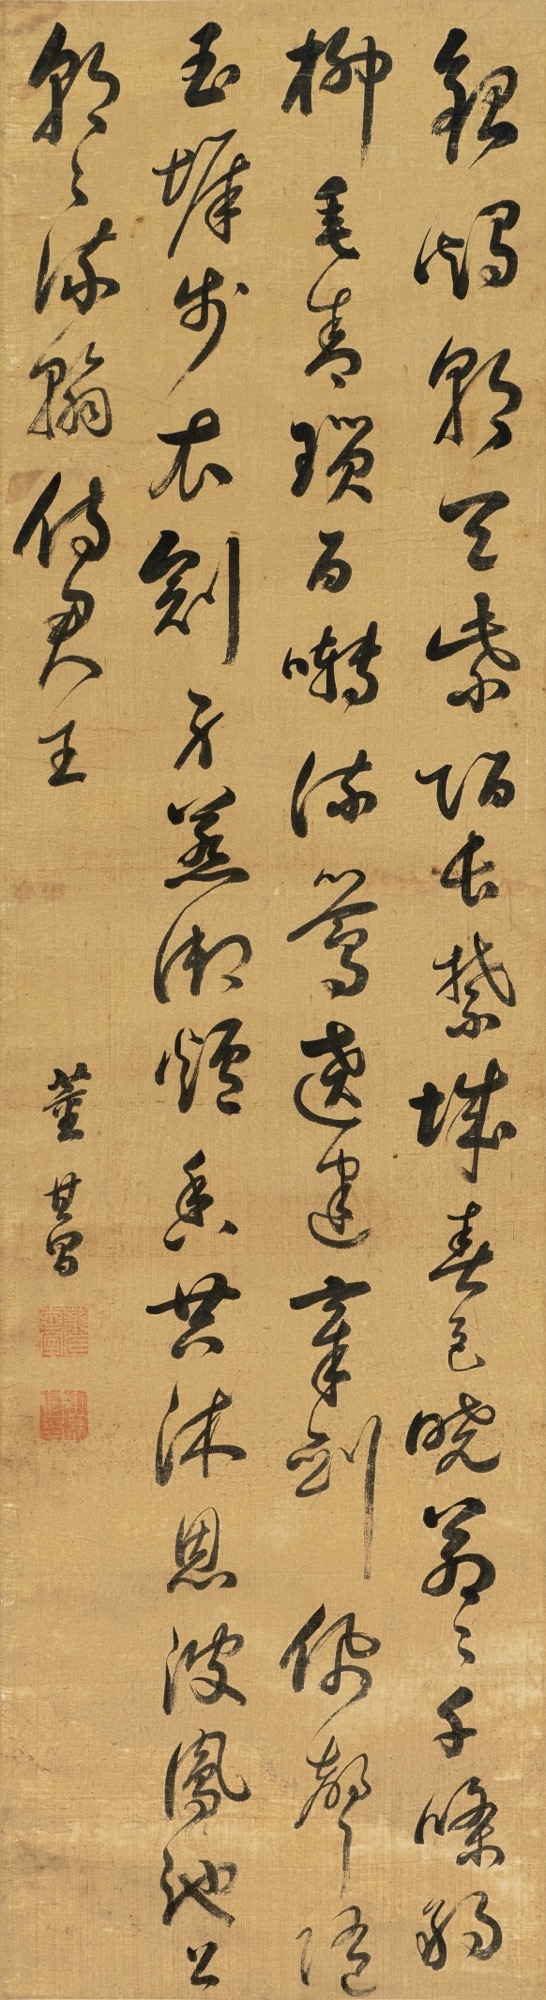 銀燭朝天紫陌長禁城春色曉蒼〻千條弱
柳垂青瑣百囀流鶯遶建章劍佩聲隨
玉墀步衣冠身惹御爐香共沐恩波鳳池上
朝〻染翰侍君王
董其昌